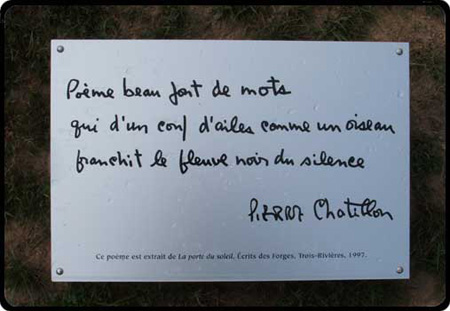 Poème beau fait de mots
qui d'un coup d'ailes comme un oiseau
franchit le fleuve noir du silence
PIERRE Chatillon
Ce poème est extrait de La porte du soleil, Écrits des Forges, Trois-Rivières, 1997.